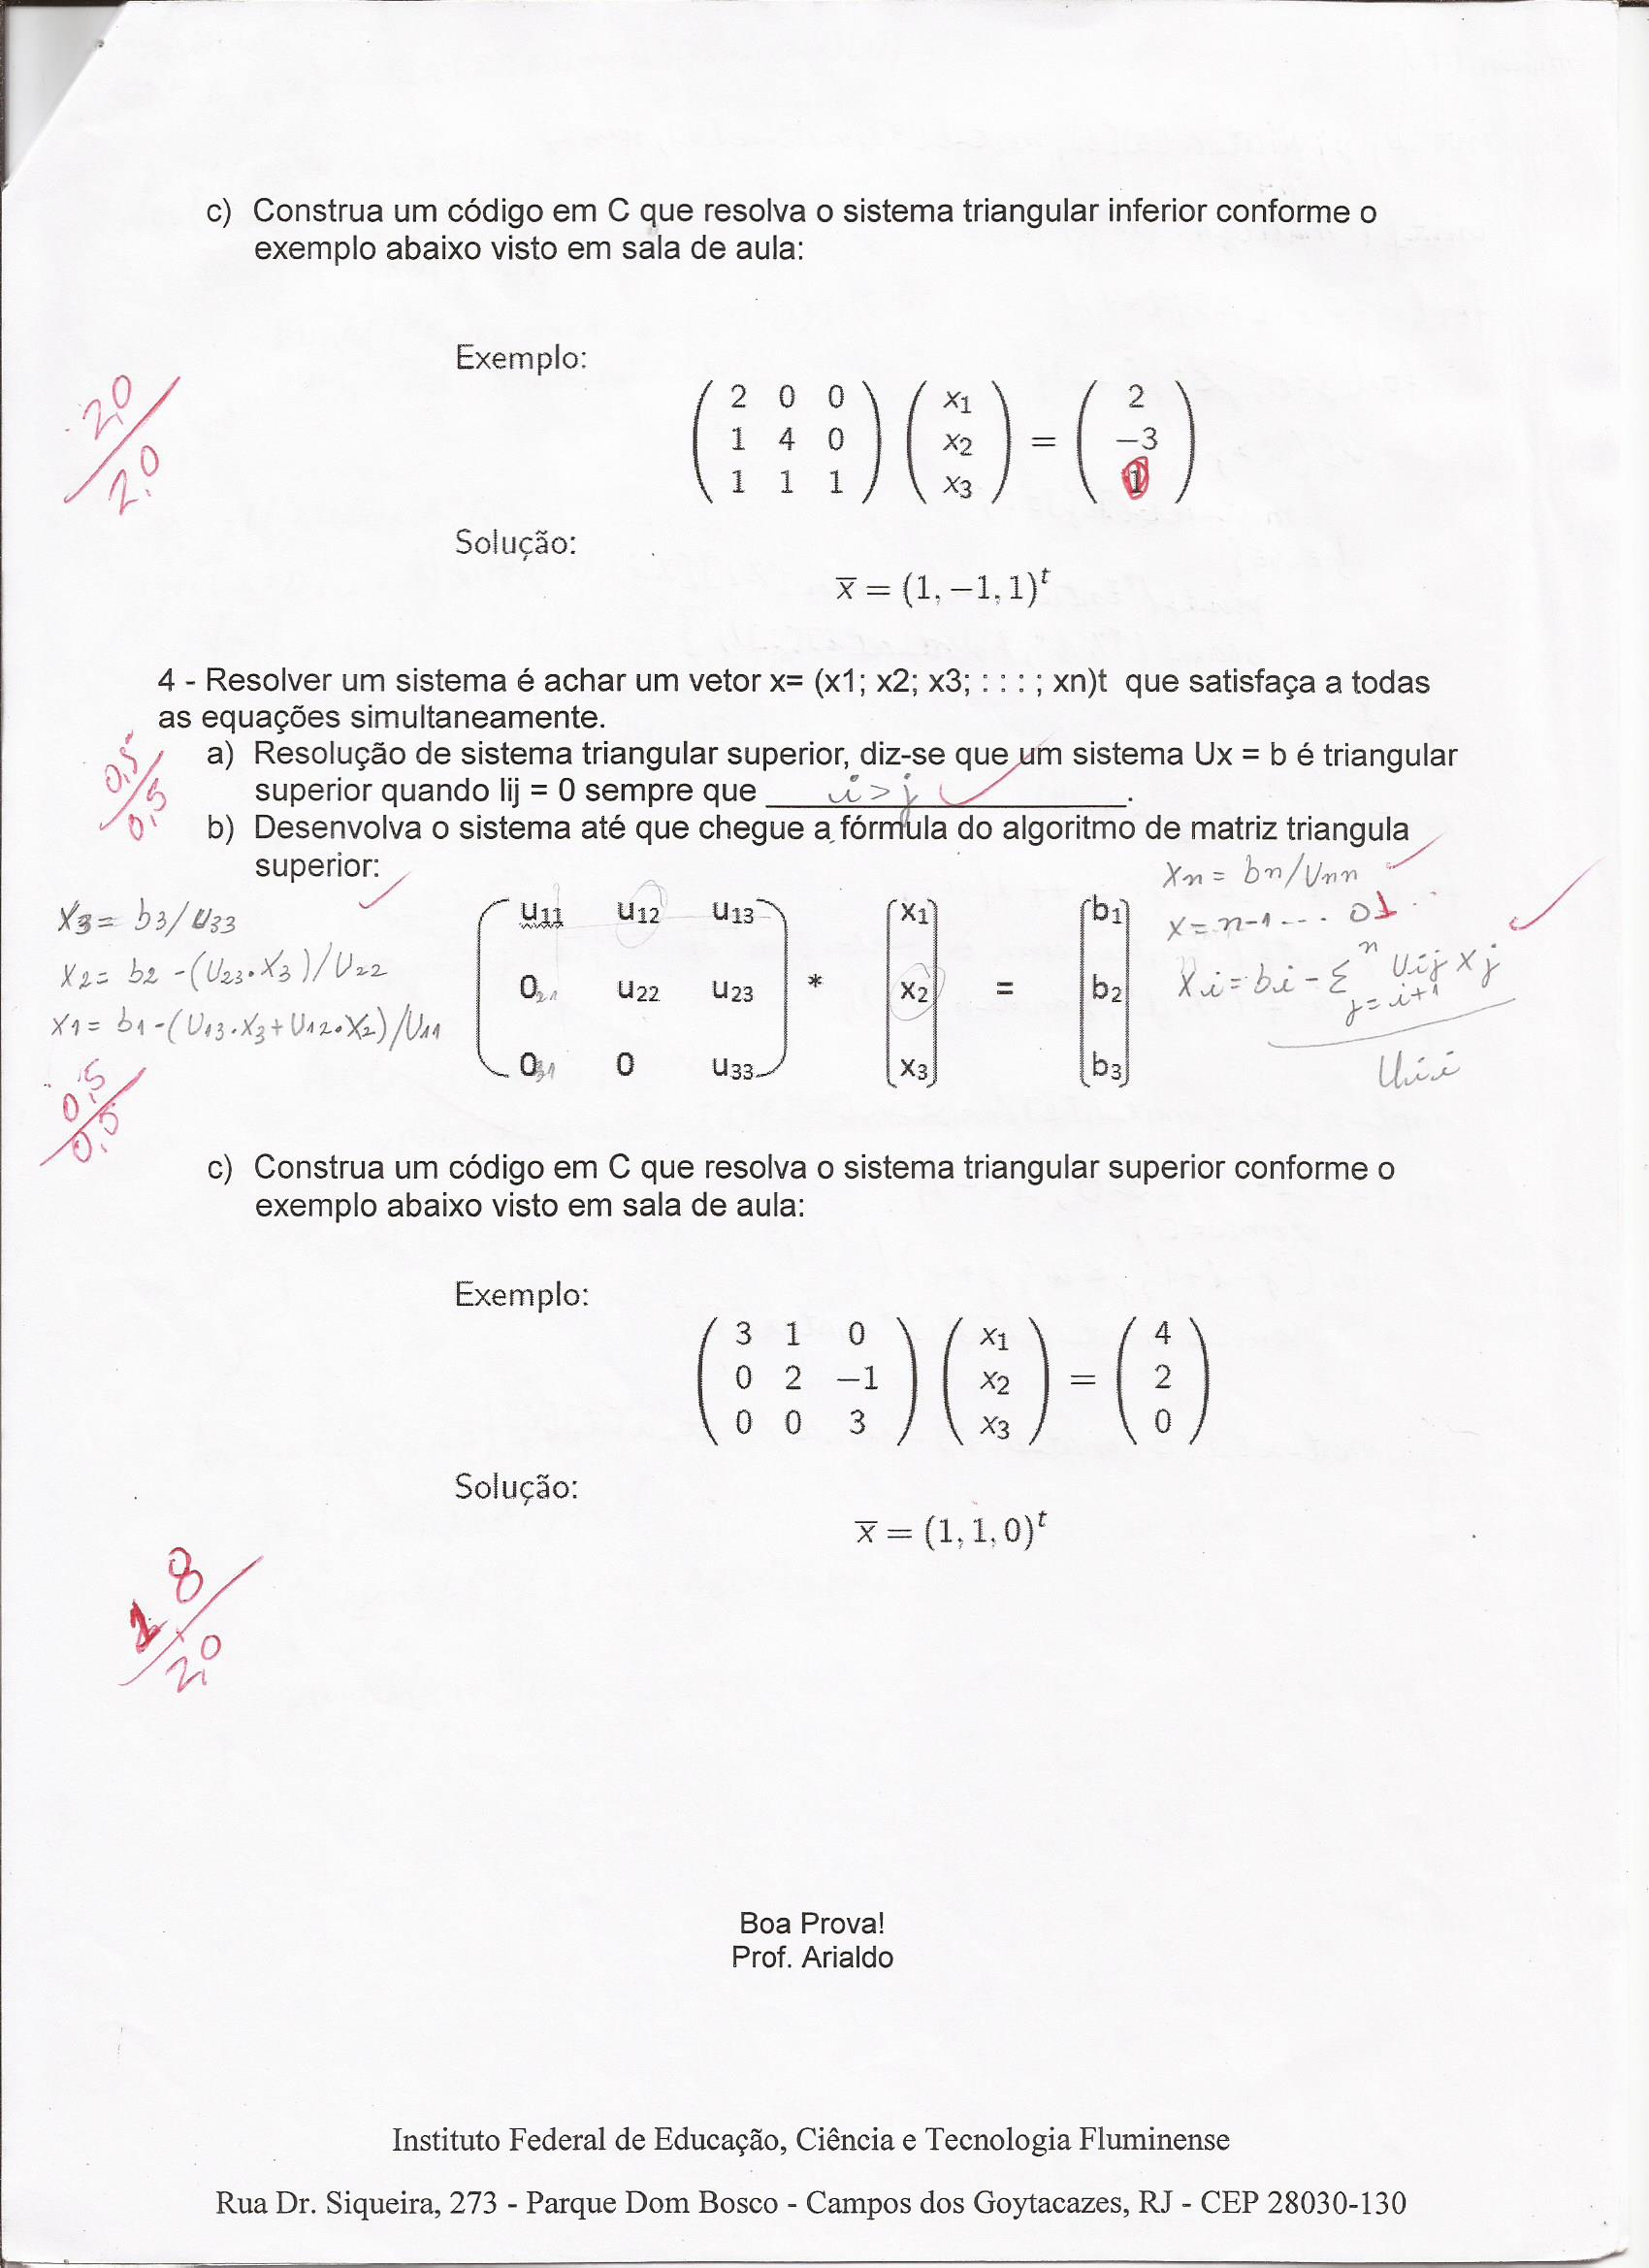 c) Construa um código em C que resolva o sistema triangular inferior conforme o
exemplo abaixo visto em sala de aula:
Exemplo:
2 0 0 x1 2
1 4 0 x2 = -3
1 1 1 x3 1
2,0/2,0
Solução:
x̅ = (1, −1, 1)ᵗ
4 - Resolver um sistema é achar um vetor x= (x1; x2; x3; : : : ; xn)t que satisfaça a todas
as equações simultaneamente.
a) Resolução de sistema triangular superior, diz-se que um sistema Ux = b é triangular
superior quando lij = 0 sempre que i > j.
0,5/0,5
b) Desenvolva o sistema até que chegue a fórmula do algoritmo de matriz triangula
superior:
x3 = b3/u33
x2 = b2 - (U23.x3)/U22
x1 = b1 - (U13.x3 + U12.x2)/U11
u11 u12 u13 x1 b1
0 21 u22 u23 * x2 = b2
0 31 0 u33 x3 b3
xn = bn/Unn
x = n-1 --- 01
xi = bi - Σ n j=i+1 Uij xj
Uii
0,5/0,5
c) Construa um código em C que resolva o sistema triangular superior conforme o
exemplo abaixo visto em sala de aula:
Exemplo:
3 1 0 x1 4
0 2 −1 x2 = 2
0 0 3 x3 0
Solução:
x̅ = (1, 1, 0)ᵗ
1,8/2,0
Boa Prova!
Prof. Arialdo
Instituto Federal de Educação, Ciência e Tecnologia Fluminense
Rua Dr. Siqueira, 273 - Parque Dom Bosco - Campos dos Goytacazes, RJ - CEP 28030-130